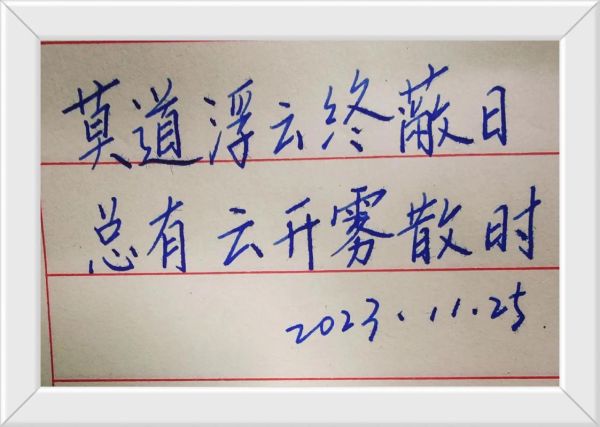 莫道浮云终蔽日
总有云开雾散时
2023.11.25